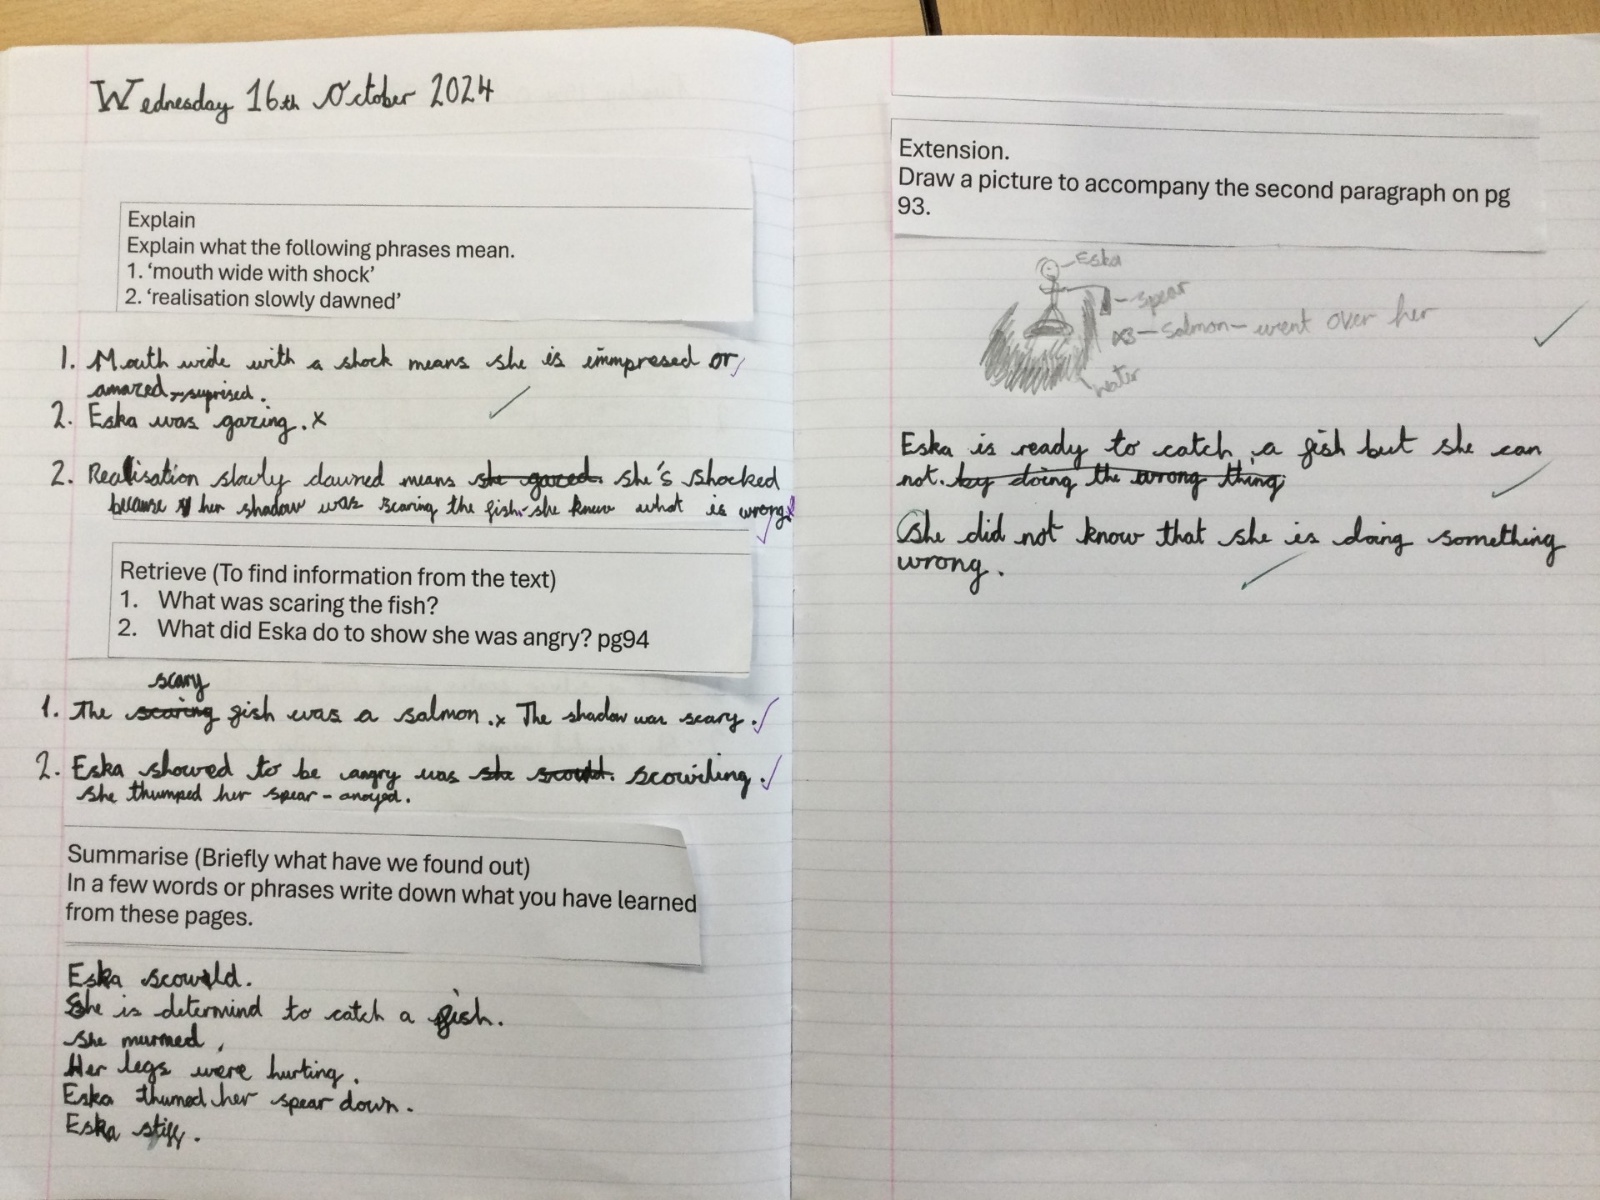 Wednesday 16th October 2024
Explain
Explain what the following phrases mean.
1. ‘mouth wide with shock’
2. ‘realisation slowly dawned’
1. Mouth wide with a shock means she is immpresed or
amazed - suprised.
2. Eska was gazing. x
2. Realisation slowly dawned means she gazed. she's shocked
because her shadow was scaring the fish. she knew what is wrong.
Retrieve (To find information from the text)
1. What was scaring the fish?
2. What did Eska do to show she was angry? pg94
scary
1. The scaring fish was a salmon. x The shadow was scary.
2. Eska showed to be angry was she scowling.
she thumped her spear - anoyed.
Summarise (Briefly what have we found out)
In a few words or phrases write down what you have learned
from these pages.
Eska scowld.
She is determind to catch a fish.
She murmed,
Her legs were hurting.
Eska thumed her spear down.
Eska stiff.
Extension.
Draw a picture to accompany the second paragraph on pg
93.
Eska
spear
salmon - went over her
water
Eska is ready to catch a fish but she can
not. by doing the wrong thing
She did not know that she is doing something
wrong.